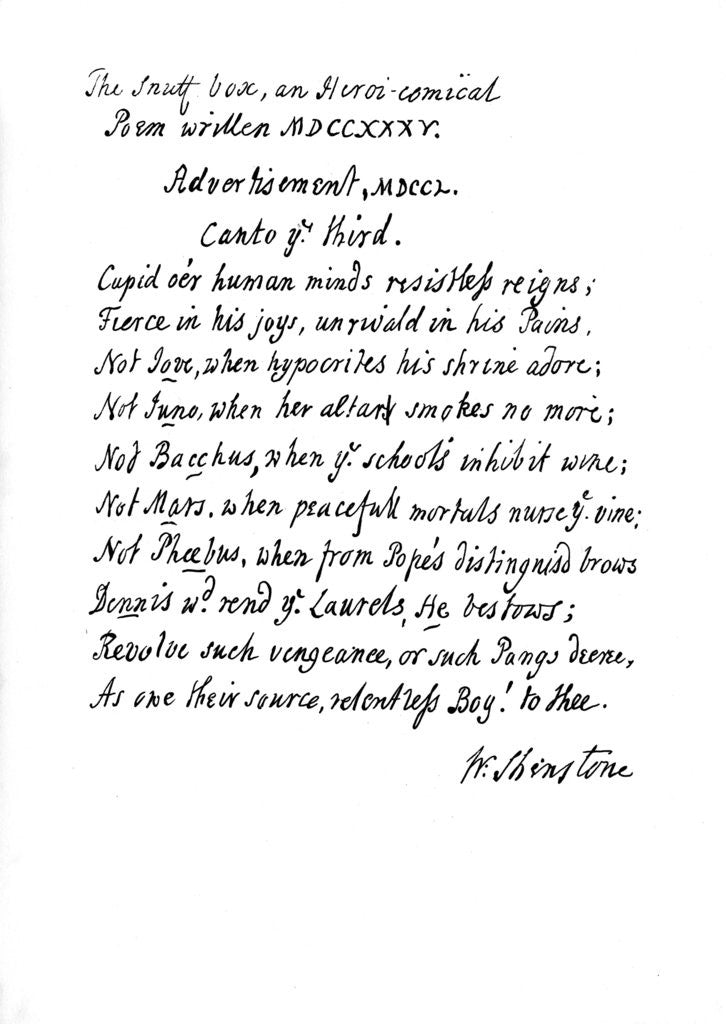 The Snuff box, an Heroi-comical
Poem written MDCCXXXV.
Advertisement, MDCCL.
Canto ye. third.
Cupid o'er human minds resistless reigns;
Fierce in his joys, unrivald in his Pains.
Not Jove, when hypocrites his shrine adore;
Not Juno, when her altar smokes no more;
Not Bacchus, when ye. schools inhibit wine;
Not Mars. when peacefull mortals nurse ye. vine;
Not Phœbus, when from Pope's distinguisd brows
Dennis wd. rend ye. Laurels, He bestows;
Revolve such vengeance, or such Pangs decree,
As owe their source, relentless Boy! to thee.
W. Shenstone